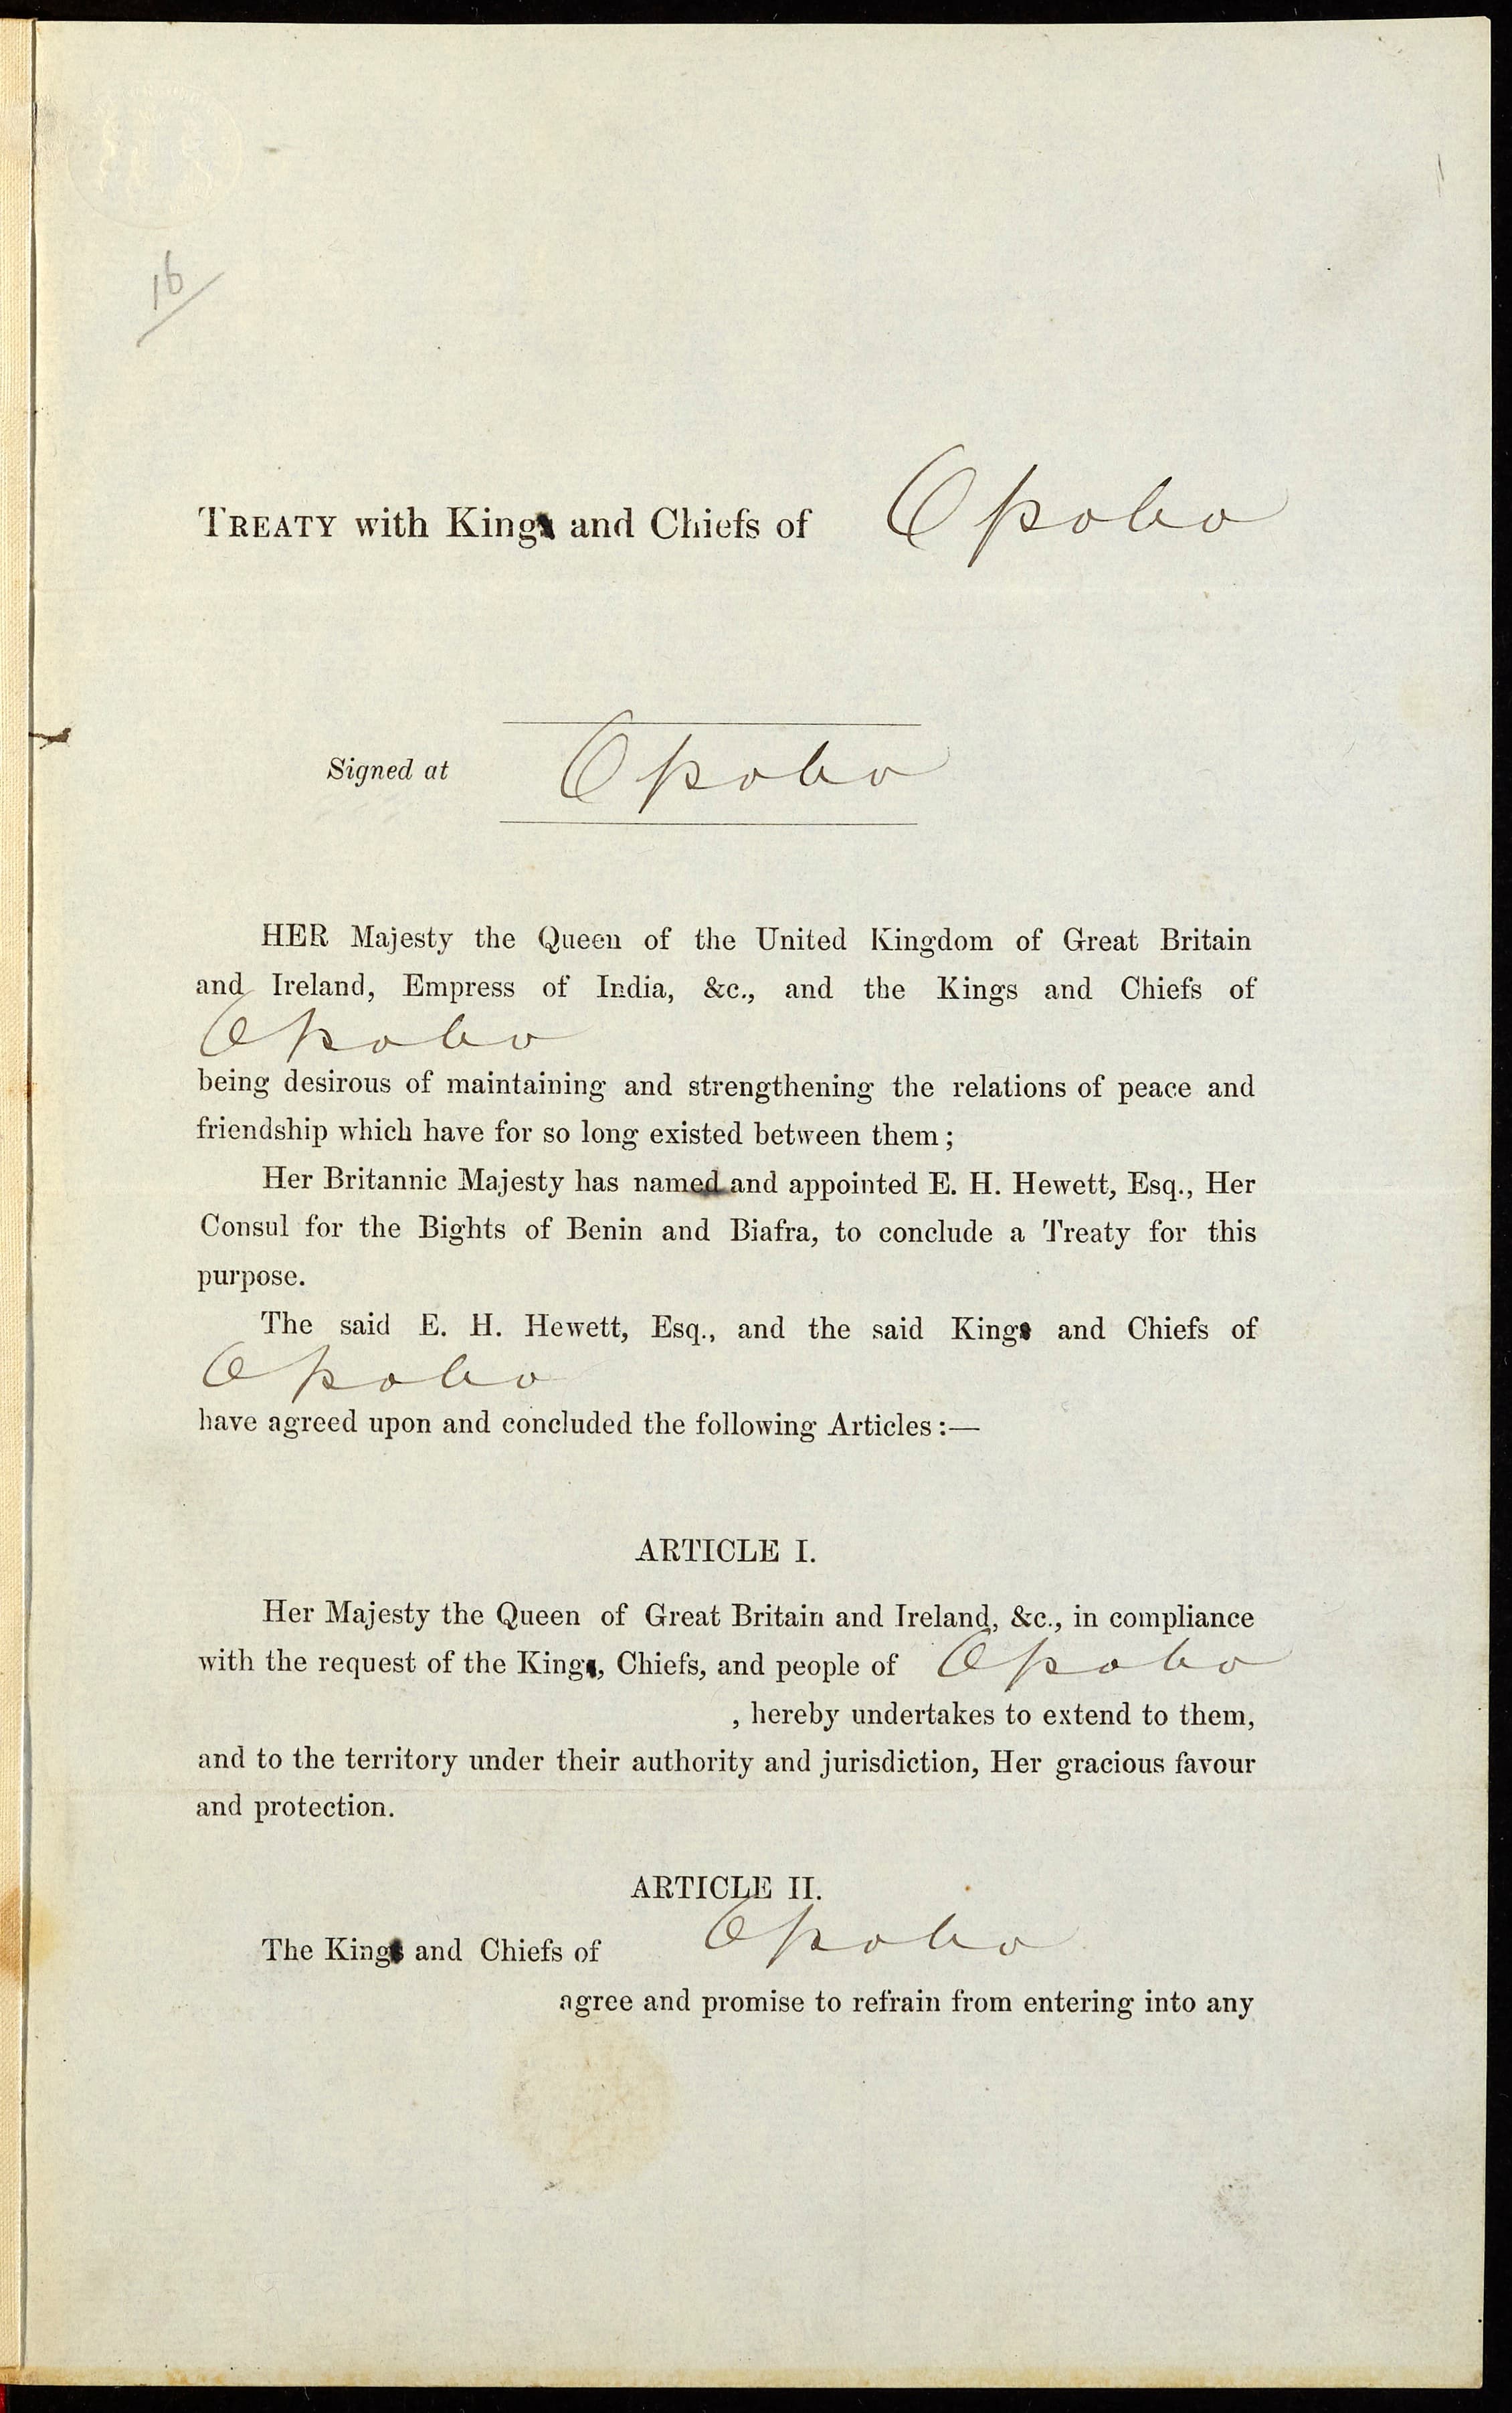 16
TREATY with King and Chiefs of Opobo
Signed at Opobo
HER Majesty the Queen of the United Kingdom of Great Britain
and Ireland, Empress of India, &c., and the Kings and Chiefs of
Opobo
being desirous of maintaining and strengthening the relations of peace and
friendship which have for so long existed between them;
Her Britannic Majesty has named and appointed E. H. Hewett, Esq., Her
Consul for the Bights of Benin and Biafra, to conclude a Treaty for this
purpose.
The said E. H. Hewett, Esq., and the said King and Chiefs of
Opobo
have agreed upon and concluded the following Articles:—
ARTICLE I.
Her Majesty the Queen of Great Britain and Ireland, &c., in compliance
with the request of the King, Chiefs, and people of Opobo
, hereby undertakes to extend to them,
and to the territory under their authority and jurisdiction, Her gracious favour
and protection.
ARTICLE II.
The King and Chiefs of Opobo
agree and promise to refrain from entering into any